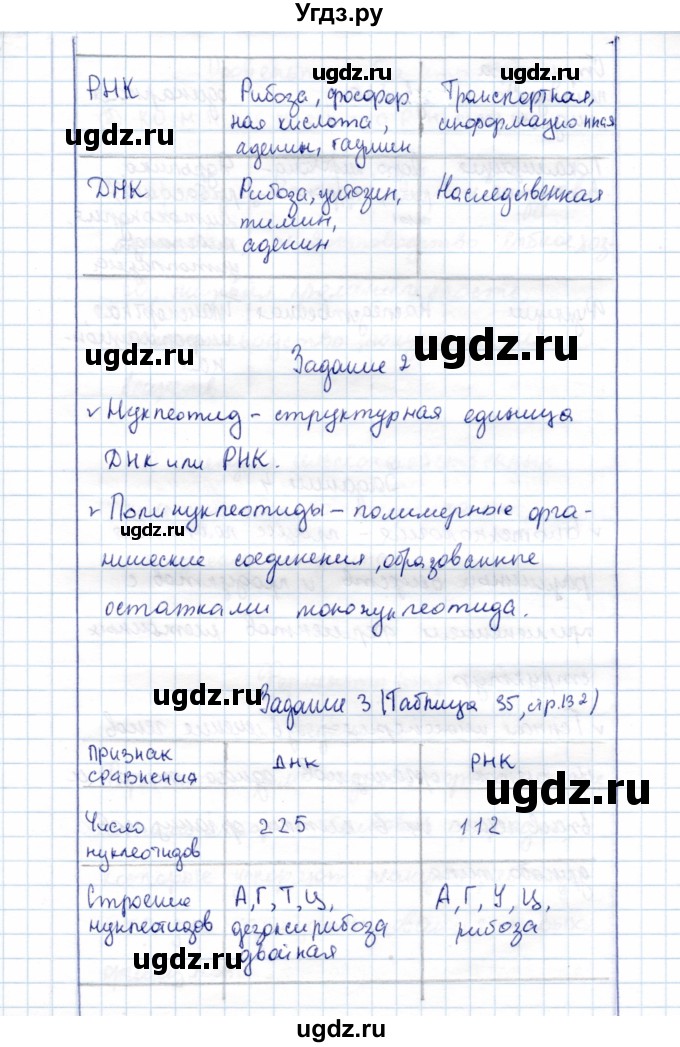 Угдз.ру
ugdz.ru
РНК Рибоза, фосфор Транспортная,
ная кислота, информационная
ugdz.ru
аденин, гаумин
ugdz.ru
ДНК Рибоза, цитозин, Наследственная
тимин,
аденин
ugdz.ru ugdz.ru
Задание 2
v Нуклеотид - структурная единица
ДНК или РНК.
v Полинуклеотиды - полимерные орга-
ugdz.ru
нические соединения, образованные
остатками мононуклеотида.
ugdz.ru
Задание 3 (Таблица 35, стр.132)
Признак ДНК РНК
сравнения
ugdz.ru
Число 225 112
нуклеотидов
Строение А, Г, Т, Ц, А, Г, У, Ц,
нуклеотидов дезоксирибоза рибоза
двойная
ugdz.ru
ugdz.ru
ugdz.ru